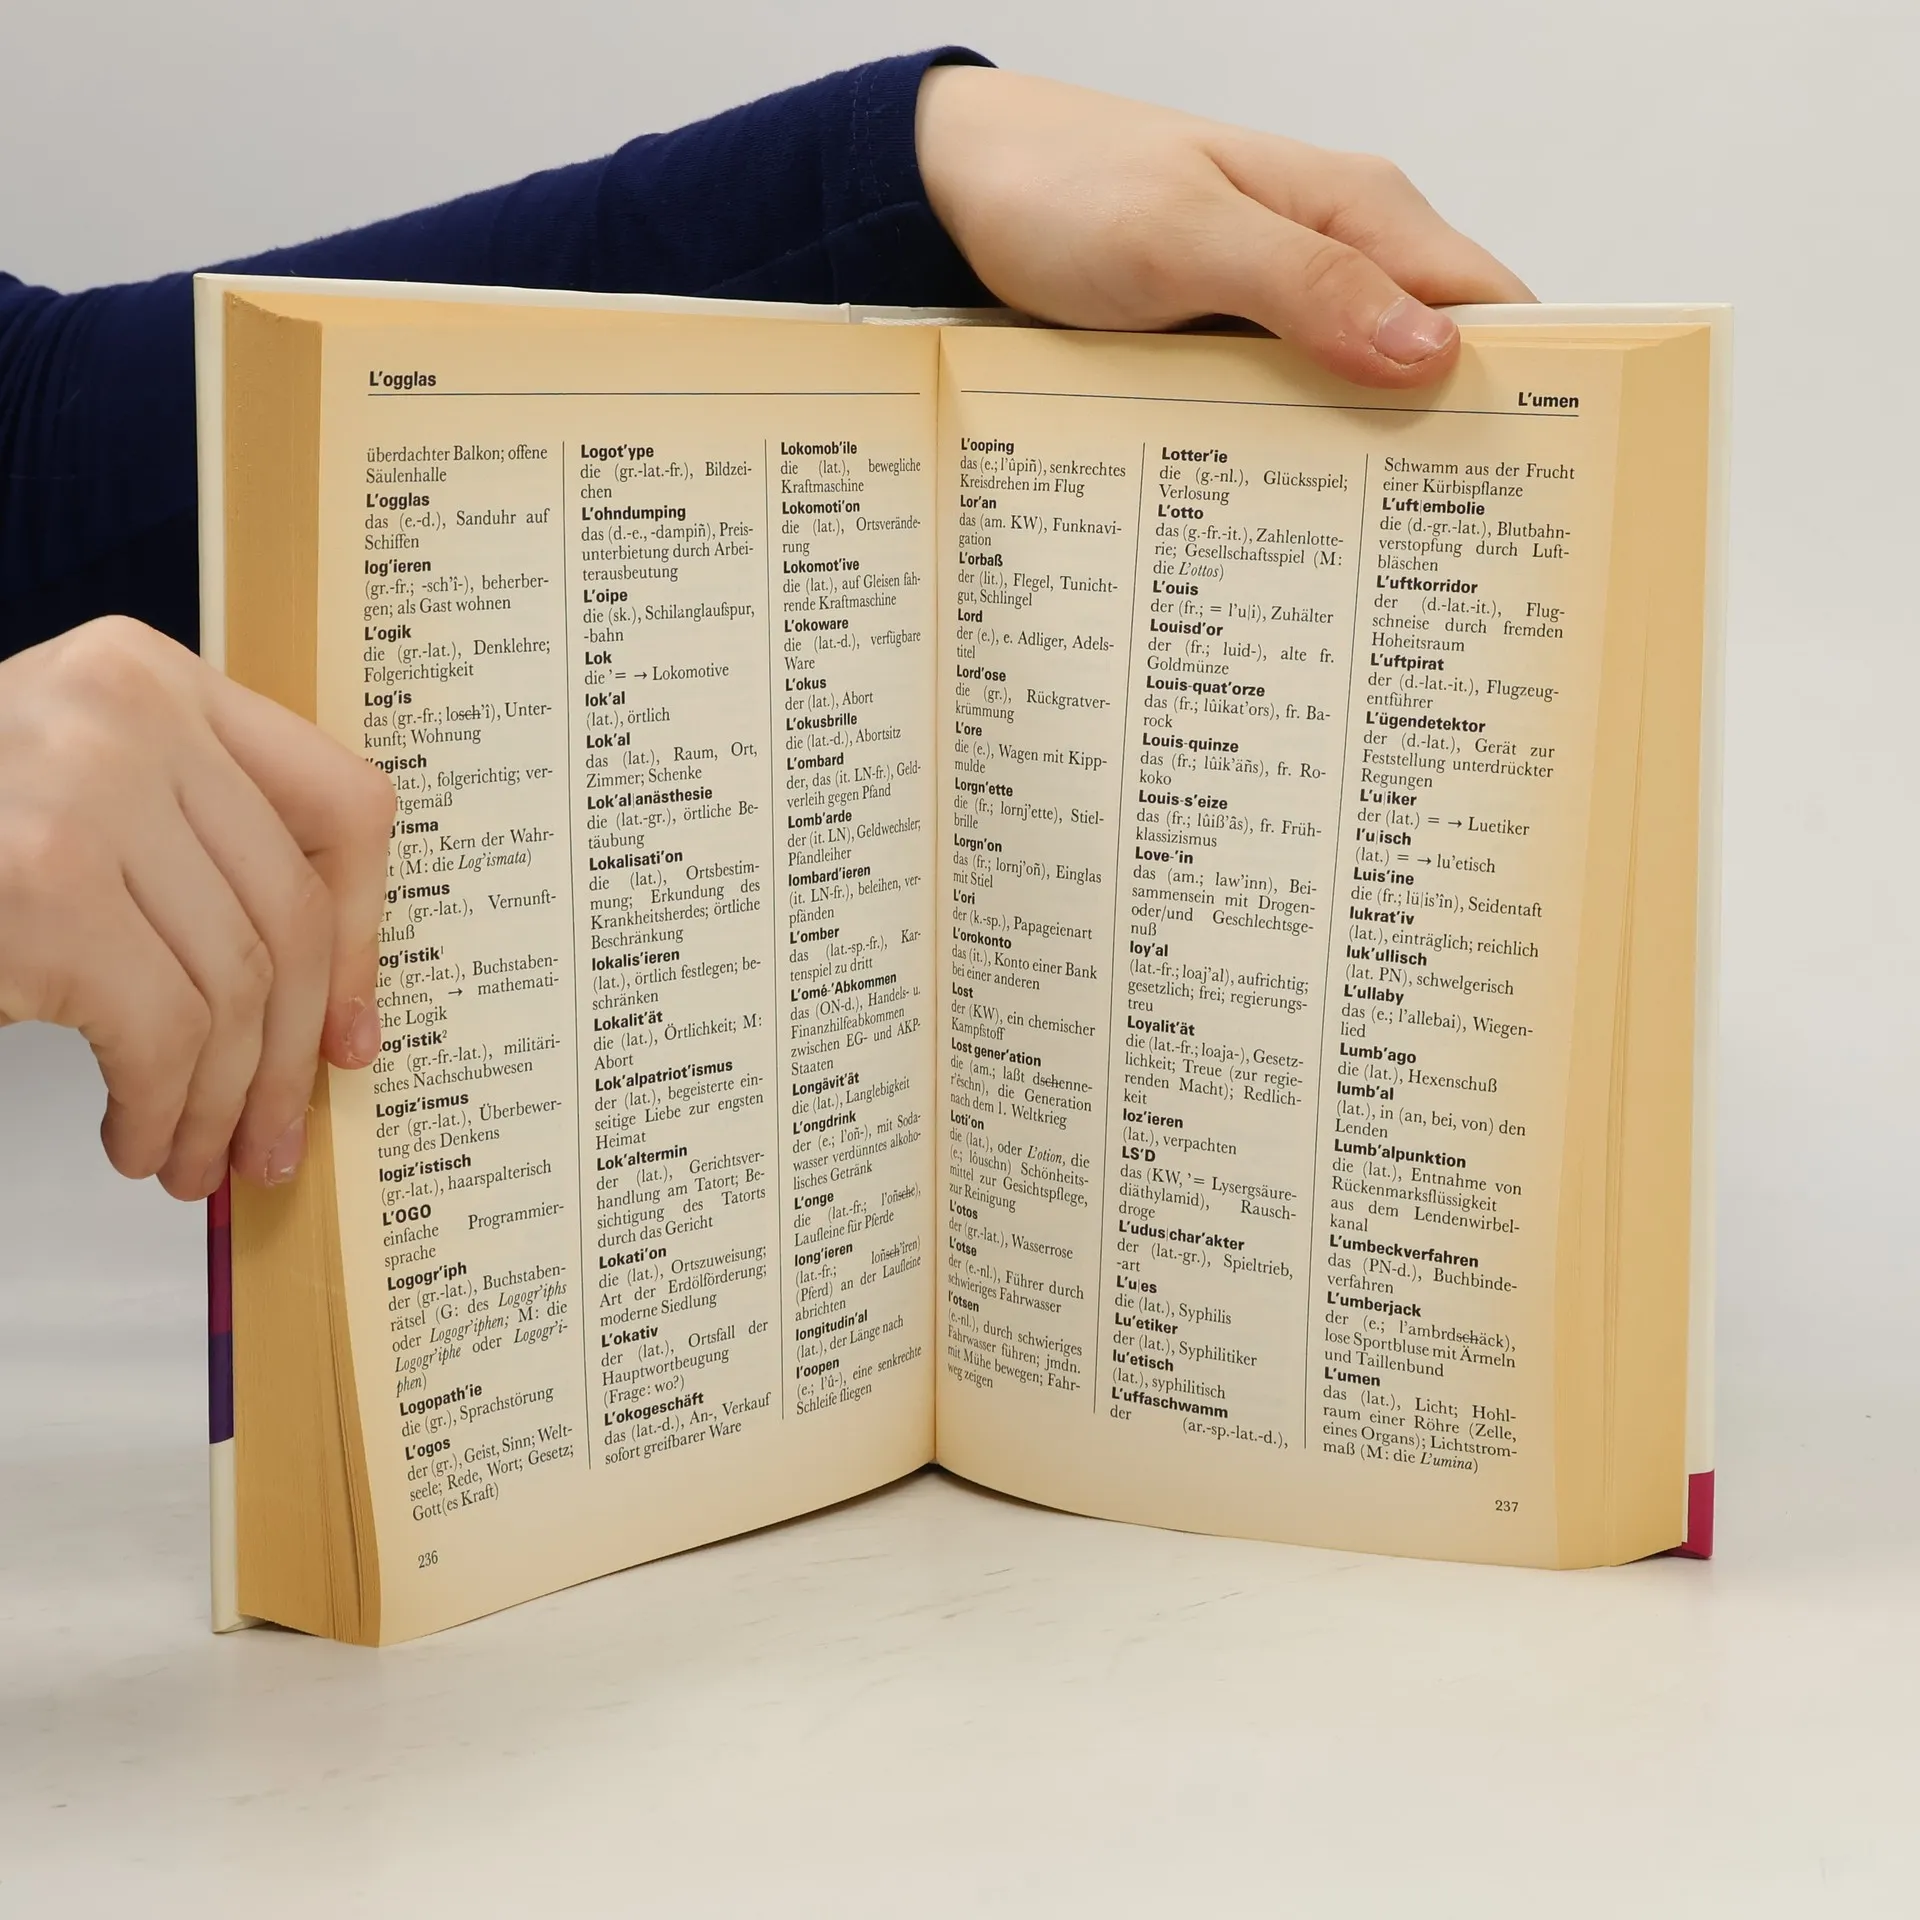 L'ogglas
überdachter Balkon; offene
Säulenhalle
L'ogglas
das (e.-d.), Sanduhr auf
Schiffen
log'ieren
(gr.-fr.; -sch'î-), beherber-
gen; als Gast wohnen
L'ogik
die (gr.-lat.), Denklehre;
Folgerichtigkeit
Log'is
das (gr.-fr.; losch'î), Unter-
kunft; Wohnung
'ogisch
-lat.), folgerichtig; ver-
ftgemäß
g'isma
(gr.), Kern der Wahr-
t (M: die Log'ismata)
og'ismus
r (gr.-lat.), Vernunft-
chluß
og'istik¹
die (gr.-lat.), Buchstaben-
echnen, → mathemati-
che Logik
og'istik²
die (gr.-fr.-lat.), militäri-
sches Nachschubwesen
Logiz'ismus
der (gr.-lat.), Überbewer-
tung des Denkens
logiz'istisch
(gr.-lat.), haarspalterisch
L'OGO
einfache Programmier-
sprache
Logogr'iph
der (gr.-lat.), Buchstaben-
rätsel (G: des Logogr'iphs
oder Logogr'iphen; M: die
Logogr'iphe oder Logogr'i-
phen)
Logopath'ie
die (gr.), Sprachstörung
L'ogos
der (gr.), Geist, Sinn; Welt-
seele; Rede, Wort; Gesetz;
Gott(es Kraft)
Logot'ype
die (gr.-lat.-fr.), Bildzei-
chen
L'ohndumping
das (d.-e., -dampiñ), Preis-
unterbietung durch Arbei-
terausbeutung
L'oipe
die (sk.), Schilanglaufspur,
-bahn
Lok
die ' = → Lokomotive
lok'al
(lat.), örtlich
Lok'al
das (lat.), Raum, Ort,
Zimmer; Schenke
Lok'al|anästhesie
die (lat.-gr.), örtliche Be-
täubung
Lokalisati'on
die (lat.), Ortsbestim-
mung; Erkundung des
Krankheitsherdes; örtliche
Beschränkung
lokalis'ieren
(lat.), örtlich festlegen; be-
schränken
Lokalit'ät
die (lat.), Örtlichkeit; M:
Abort
Lok'alpatriot'ismus
der (lat.), begeisterte ein-
seitige Liebe zur engsten
Heimat
Lok'altermin
der (lat.), Gerichtsver-
handlung am Tatort; Be-
sichtigung des Tatorts
durch das Gericht
Lokati'on
die (lat.), Ortszuweisung;
Art der Erdölförderung;
moderne Siedlung
L'okativ
der (lat.), Ortsfall der
Hauptwortbeugung
(Frage: wo?)
L'okogeschäft
das (lat.-d.), An-, Verkauf
sofort greifbarer Ware
Lokomob'ile
die (lat.), bewegliche
Kraftmaschine
Lokomoti'on
die (lat.), Ortsverände-
rung
Lokomot'ive
die (lat.), auf Gleisen fah-
rende Kraftmaschine
L'okoware
die (lat.-d.), verfügbare
Ware
L'okus
der (lat.), Abort
L'okusbrille
die (lat.-d.), Abortsitz
L'ombard
der, das (it. LN-fr.), Geld-
verleih gegen Pfand
Lomb'arde
der (it. LN), Geldwechsler;
Pfandleiher
lombard'ieren
(it. LN-fr.), beleihen, ver-
pfänden
L'omber
das (lat.-sp.-fr.), Kar-
tenspiel zu dritt
L'omé-'Abkommen
das (ON-d.), Handels- u.
Finanzhilfeabkommen
zwischen EG- und AKP-
Staaten
Longävit'ät
die (lat.), Langlebigkeit
L'ongdrink
der (e.; l'oñ-), mit Soda-
wasser verdünntes alkoho-
lisches Getränk
L'onge
die (lat.-fr.; l'oñsche),
Laufleine für Pferde
long'ieren
(lat.-fr.; loñsch'îren)
(Pferd) an der Laufleine
abrichten
longitudin'al
(lat.), der Länge nach
l'oopen
(e.; l'û-), eine senkrechte
Schleife fliegen
236
L'umen
L'ooping
das (e.; l'ûpiñ), senkrechtes
Kreisdrehen im Flug
Lor'an
das (am. KW), Funknavi-
gation
L'orbaß
der (lit.), Flegel, Tunicht-
gut, Schlingel
Lord
der (e.), e. Adliger, Adels-
titel
Lord'ose
die (gr.), Rückgratver-
krümmung
L'ore
die (e.), Wagen mit Kipp-
mulde
Lorgn'ette
die (fr.; lornj'ette), Stiel-
brille
Lorgn'on
das (fr.; lornj'oñ), Einglas
mit Stiel
L'ori
der (k.-sp.), Papageienart
L'orokonto
das (it.), Konto einer Bank
bei einer anderen
Lost
der (KW), ein chemischer
Kampfstoff
Lost gener'ation
die (am.; laßt dschenne-
r'ëschn), die Generation
nach dem 1. Weltkrieg
Loti'on
die (lat.), oder L'otion, die
(e.; lôuschn) Schönheits-
mittel zur Gesichtspflege,
zur Reinigung
L'otos
der (gr.-lat.), Wasserrose
L'otse
der (e.-nl.), Führer durch
schwieriges Fahrwasser
l'otsen
(e.-nl.), durch schwieriges
Fahrwasser führen; jmdn.
mit Mühe bewegen; Fahr-
weg zeigen
Lotter'ie
die (g.-nl.), Glücksspiel;
Verlosung
L'otto
das (g.-fr.-it.), Zahlenlotte-
rie; Gesellschaftsspiel (M:
die L'ottos)
L'ouis
der (fr.; = l'u|i), Zuhälter
Louisd'or
der (fr.; luid-), alte fr.
Goldmünze
Louis-quat'orze
das (fr.; lûikat'ors), fr. Ba-
rock
Louis-quinze
das (fr.; lûik'äñs), fr. Ro-
koko
Louis-s'eize
das (fr.; lûiß'âs), fr. Früh-
klassizismus
Love-'in
das (am.; law'inn), Bei-
sammensein mit Drogen-
oder/und Geschlechtsge-
nuß
loy'al
(lat.-fr.; loaj'al), aufrichtig;
gesetzlich; frei; regierungs-
treu
Loyalit'ät
die (lat.-fr.; loaja-), Gesetz-
lichkeit; Treue (zur regie-
renden Macht); Redlich-
keit
loz'ieren
(lat.), verpachten
LS'D
das (KW, ' = Lysergsäure-
diäthylamid), Rausch-
droge
L'udus|char'akter
der (lat.-gr.), Spieltrieb,
-art
L'u|es
die (lat.), Syphilis
Lu'etiker
der (lat.), Syphilitiker
lu'etisch
(lat.), syphilitisch
L'uffaschwamm
der (ar.-sp.-lat.-d.),
Schwamm aus der Frucht
einer Kürbispflanze
L'uft|embolie
die (d.-gr.-lat.), Blutbahn-
verstopfung durch Luft-
bläschen
L'uftkorridor
der (d.-lat.-it.), Flug-
schneise durch fremden
Hoheitsraum
L'uftpirat
der (d.-lat.-it.), Flugzeug-
entführer
L'ügendetektor
der (d.-lat.), Gerät zur
Feststellung unterdrückter
Regungen
L'u|iker
der (lat.) = → Luetiker
l'u|isch
(lat.) = → lu'etisch
Luis'ine
die (fr.; lü|is'în), Seidentaft
lukrat'iv
(lat.), einträglich; reichlich
luk'ullisch
(lat. PN), schwelgerisch
L'ullaby
das (e.; l'allebai), Wiegen-
lied
Lumb'ago
die (lat.), Hexenschuß
lumb'al
(lat.), in (an, bei, von) den
Lenden
Lumb'alpunktion
die (lat.), Entnahme von
Rückenmarksflüssigkeit
aus dem Lendenwirbel-
kanal
L'umbeckverfahren
das (PN-d.), Buchbinde-
verfahren
L'umberjack
der (e.; l'ambrdschäck),
lose Sportbluse mit Ärmeln
und Taillenbund
L'umen
das (lat.), Licht; Hohl-
raum einer Röhre (Zelle,
eines Organs); Lichtstrom-
maß (M: die L'umina)
237